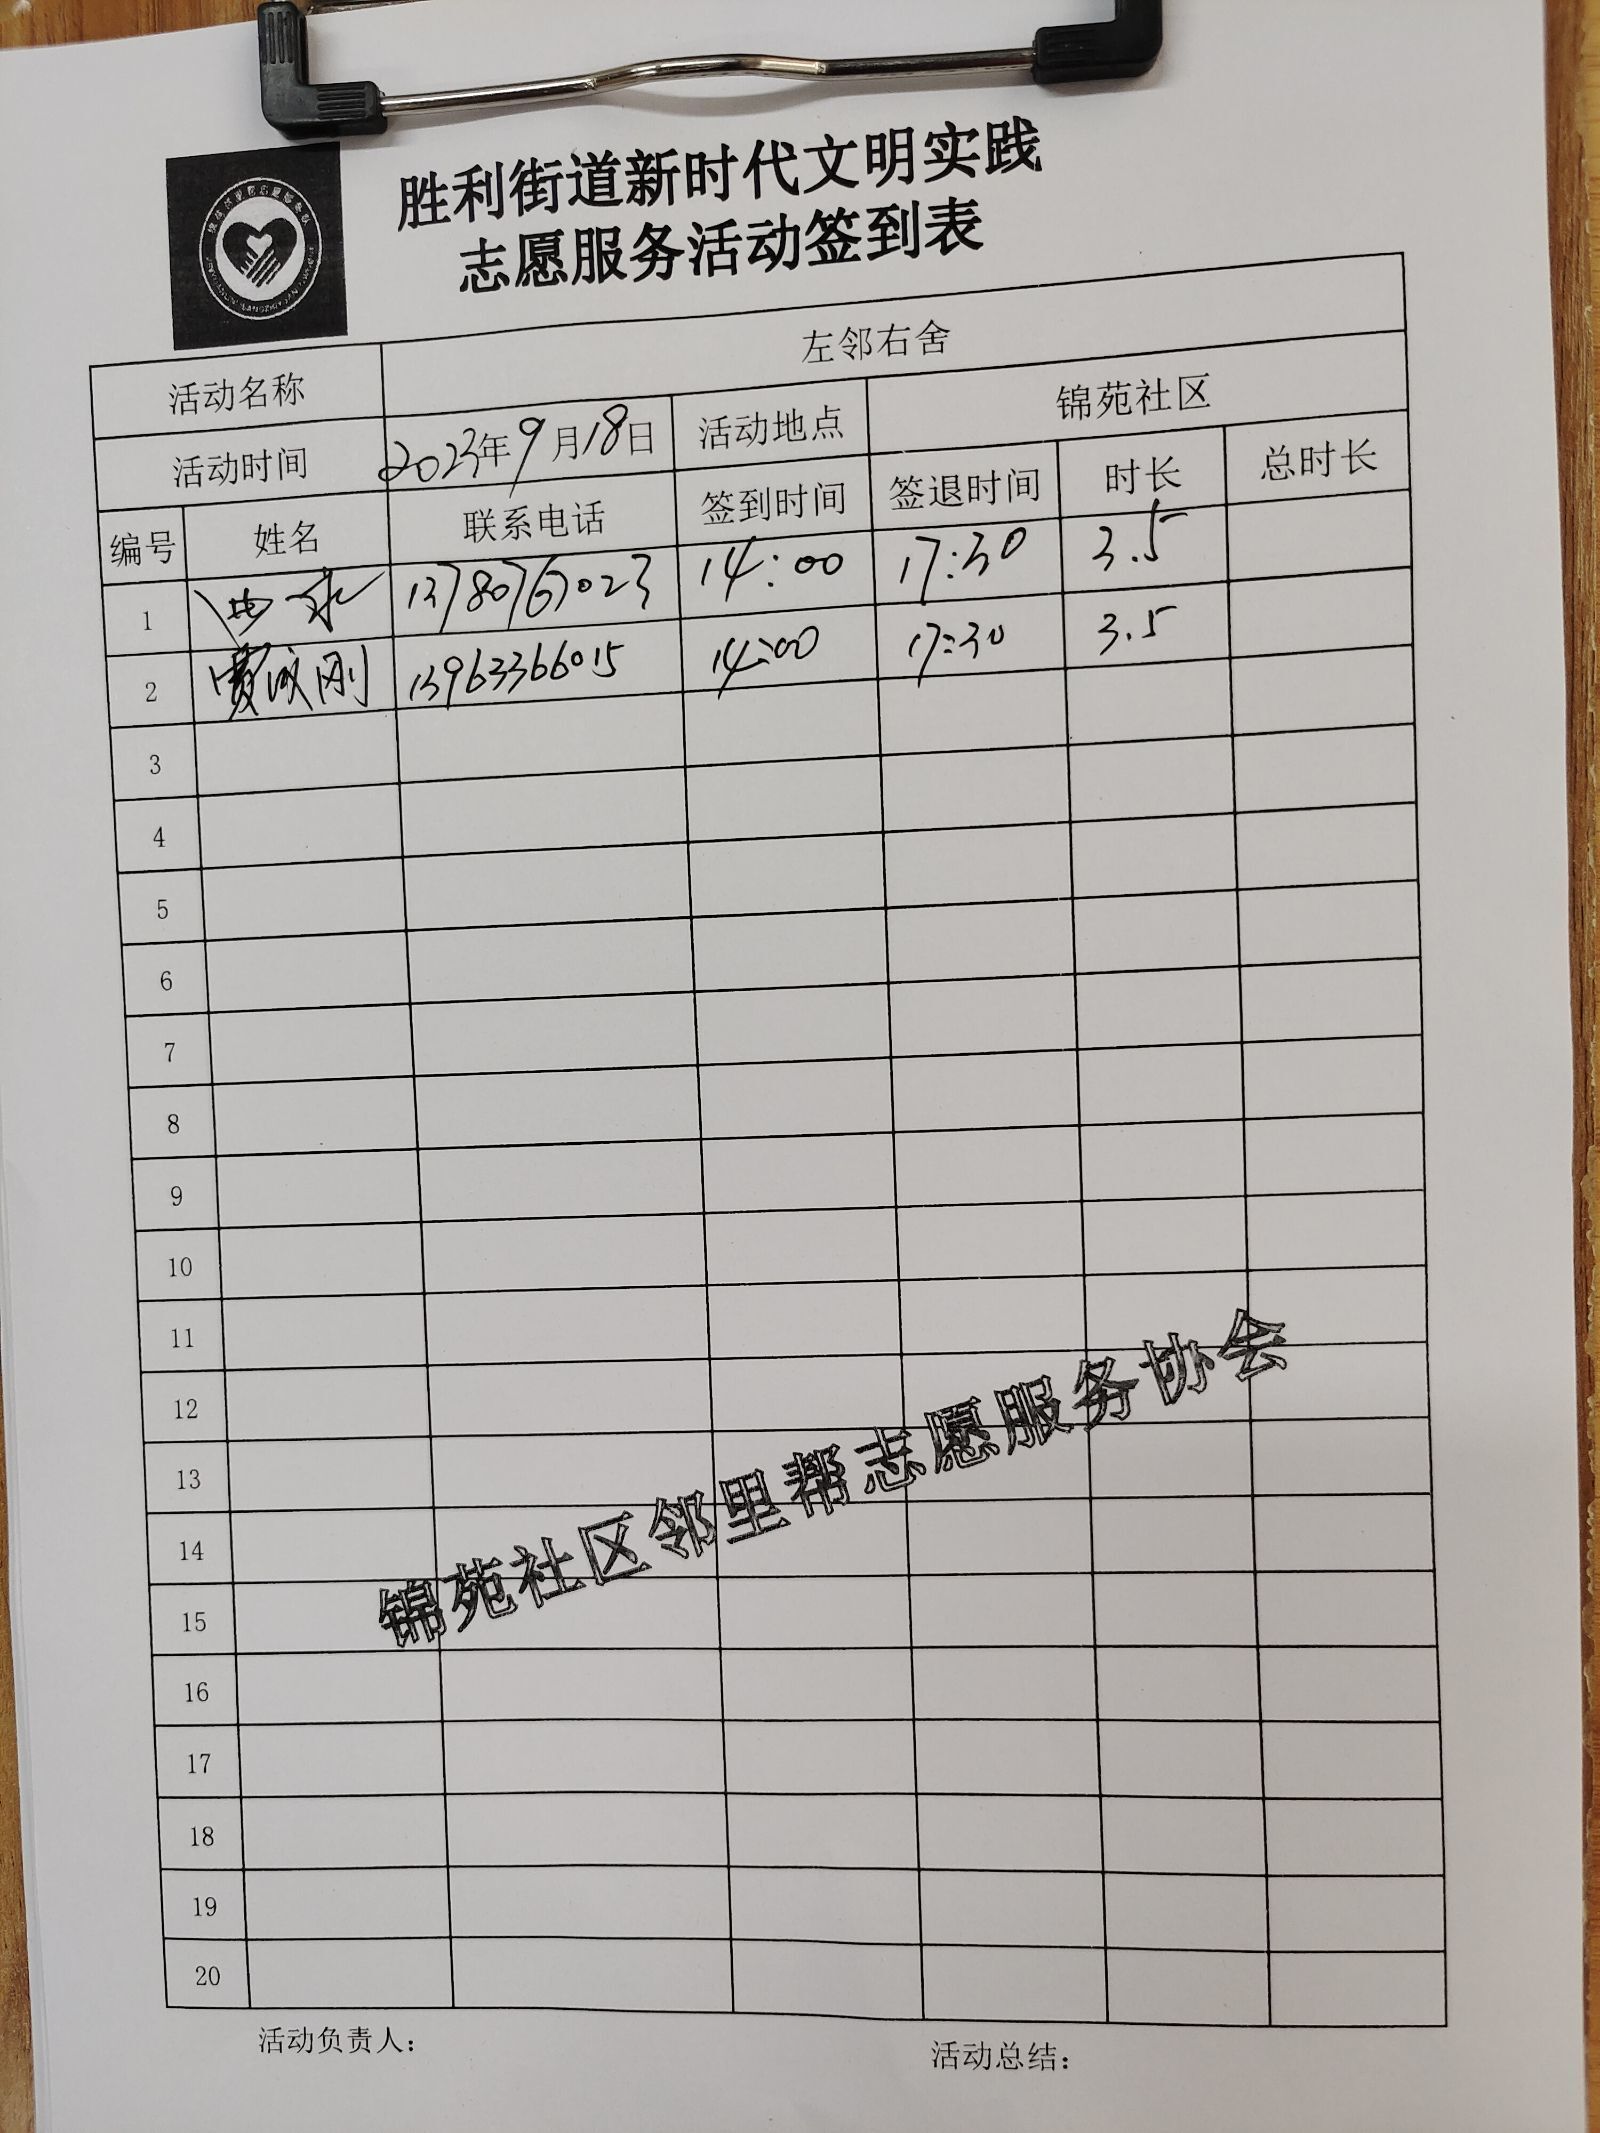 胜利街道新时代文明实践
志愿服务活动签到表
活动名称 左邻右舍
活动时间 2023年9月18日 活动地点 锦苑社区
编号 姓名 联系电话 签到时间 签退时间 时长 总时长
1 13780763023 14:00 17:30 3.5
2 贾成刚 13963366015 14:00 17:30 3.5
3
4
5
6
7
8
9
10
11
12
13
14
15
16
17
18
19
20
锦苑社区邻里帮志愿服务协会
活动负责人: 活动总结: